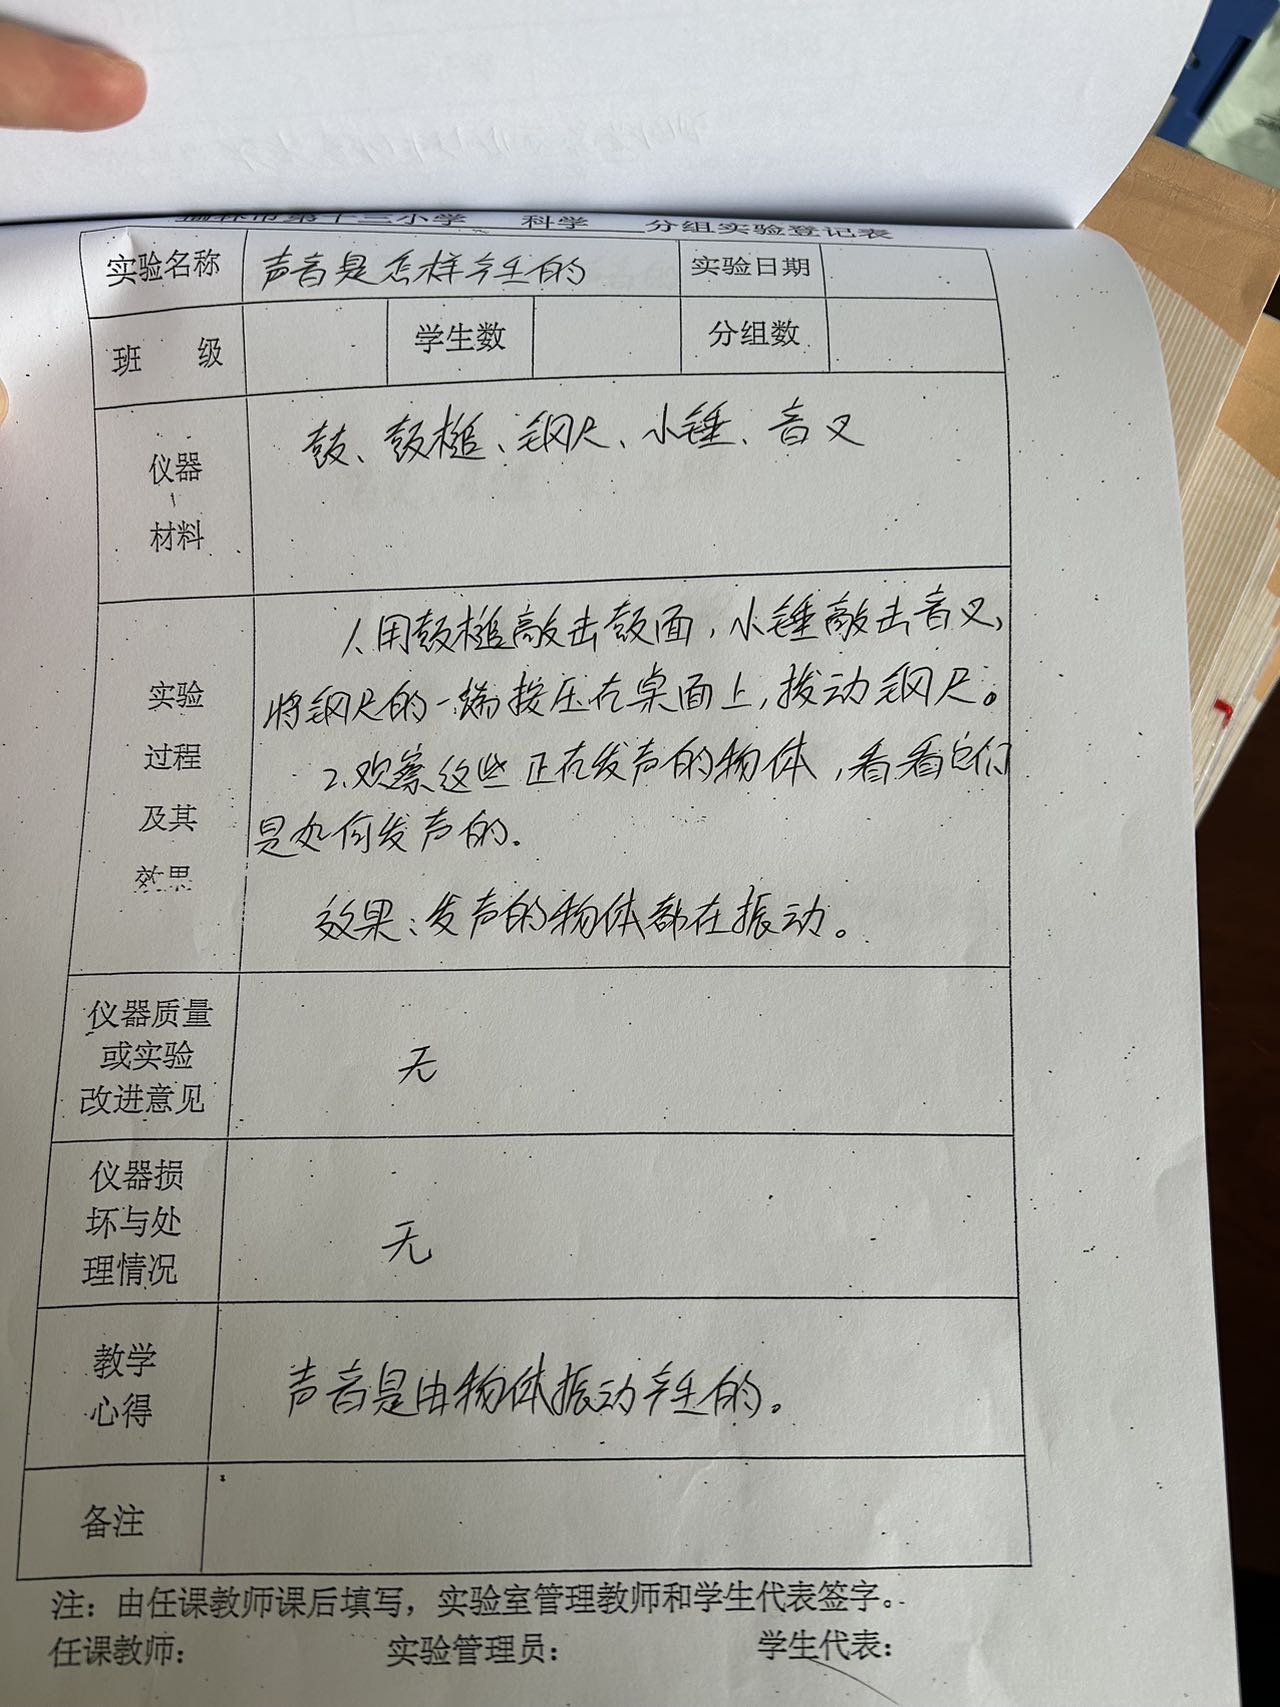 榆林市第十三小学 科学 分组实验登记表
实验名称 声音是怎样产生的 实验日期
班 级 学生数 分组数
仪器
材料
鼓、鼓槌、钢尺、小锤、音叉
实验
过程
及其
效果
1、用鼓槌敲击鼓面，小锤敲击音叉，
将钢尺的一端按压在桌面上，拨动钢尺。
2、观察这些正在发声的物体，看看它们
是如何发声的。
效果：发声的物体都在振动。
仪器质量
或实验
改进意见
无
仪器损
坏与处
理情况
无
教学
心得
声音是由物体振动产生的。
备注
注：由任课教师课后填写，实验室管理教师和学生代表签字。
任课教师： 实验管理员： 学生代表：